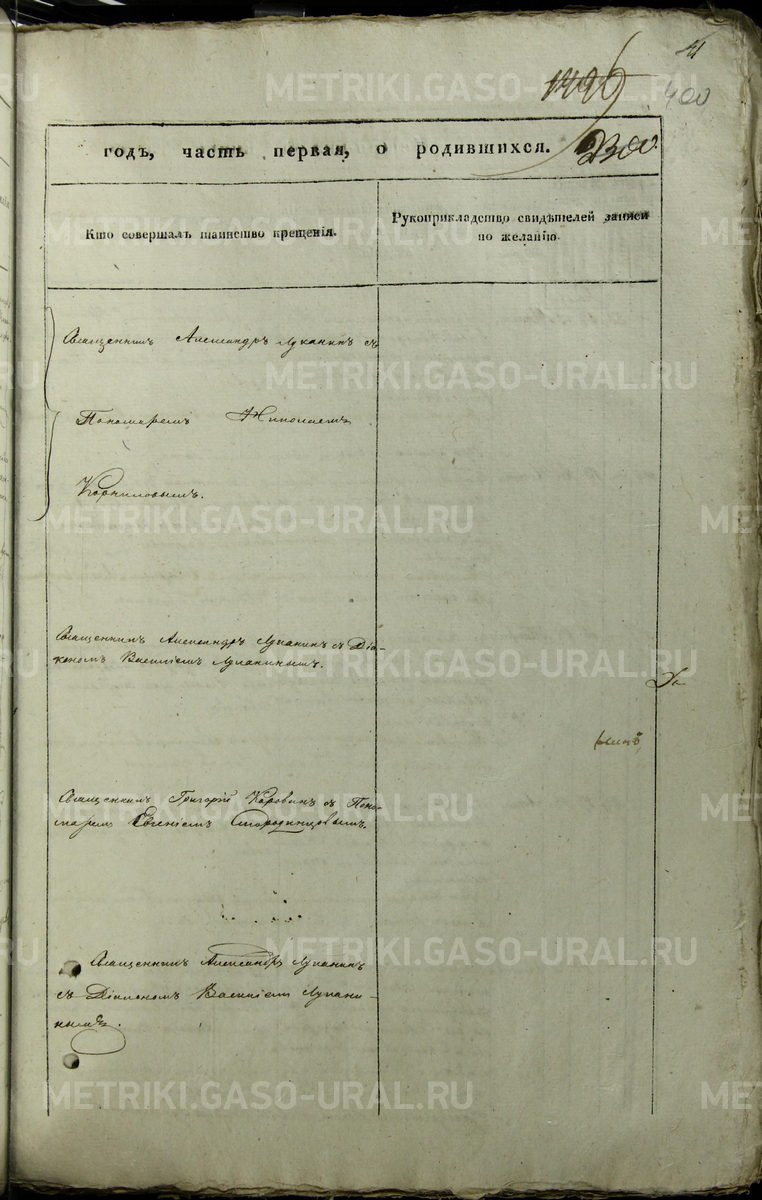 41
400
годъ, часть первая, о родившихся.
Кто совершалъ таинство крещенія.
Рукоприкладство свидѣтелей записи
по желанію.
Священникъ Александръ Луканинъ съ
Пономаремъ Николаемъ
Корниловымъ.
Священникъ Александръ Луканинъ съ Діа-
кономъ Василіемъ Луканинымъ.
Священникъ Григорій Коровинъ съ Поно-
маремъ Евгеніемъ Стородинцовымъ.
Священникъ Александръ Луканинъ
съ Діакономъ Василіемъ Лукани-
нымъ.
METRIKI.GASO-URAL.RU